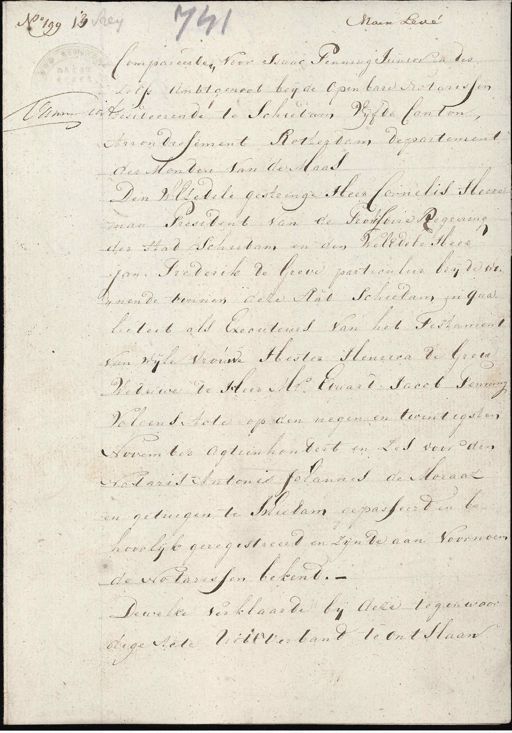 No 199 13 Frey 741 Main Levé
Compareerde Voor Isaac Penning Junior en des
zelfs Ambtgenoot beyde Openbare Notarissen
resideerende te Schiedam Vyfde Canton,
Arrondissement Rotterdam departement
der Monden Van de Maas
Den WelEdele gestrenge Heer Cornelis Heere
man President van de Provisie Regering
der Stad Schiedam en den WelEdele Heer
Jan Frederik de Greve particulier beyde wo
nende binnen deze Stad Schiedam in qua
liteit als Executeurs Van het Testament
van wyle Vrouwe Hester Henrica de Greve
Weduwe de Heer Mr. Ewart Jacob
Volgens Acte op den negen en twintigsten
November agtienhondert en Zes voor den
Notaris Antonis Johannes de Moraaz
en getuigen te Schiedam gepasseerd en be
hoorlyk geregestreert en Zynde aan Voornoem
de Notarissen bekend. —
Dewelke Verklaarde by deze tegenwoor
dige Acte Uit Verband te Ontslaan